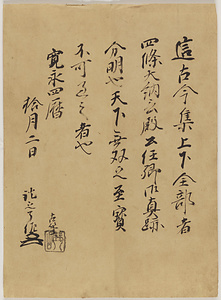 這古今集上下全部者
四條大納言殿公任卿御真跡
分明也天下無双之至寳
不可過之者也
寛永四暦
拾月二日